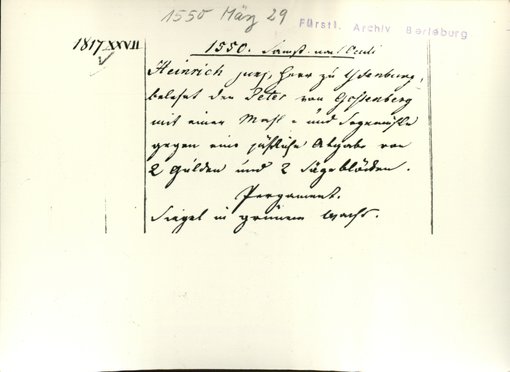 1550 März 29
Fürstl. Archiv Berleburg
1817 XXVII
1550. Samst. nach Oculi
Heinrich jung, Herr zu Ysenburg,
belehnt den Peter von
mit einer Mahl- und Sägemühle
gegen eine jährliche Abgabe von
2 Gulden und 2 Sägeblöcken.
Pergament.
Siegel in grünem Wachs.